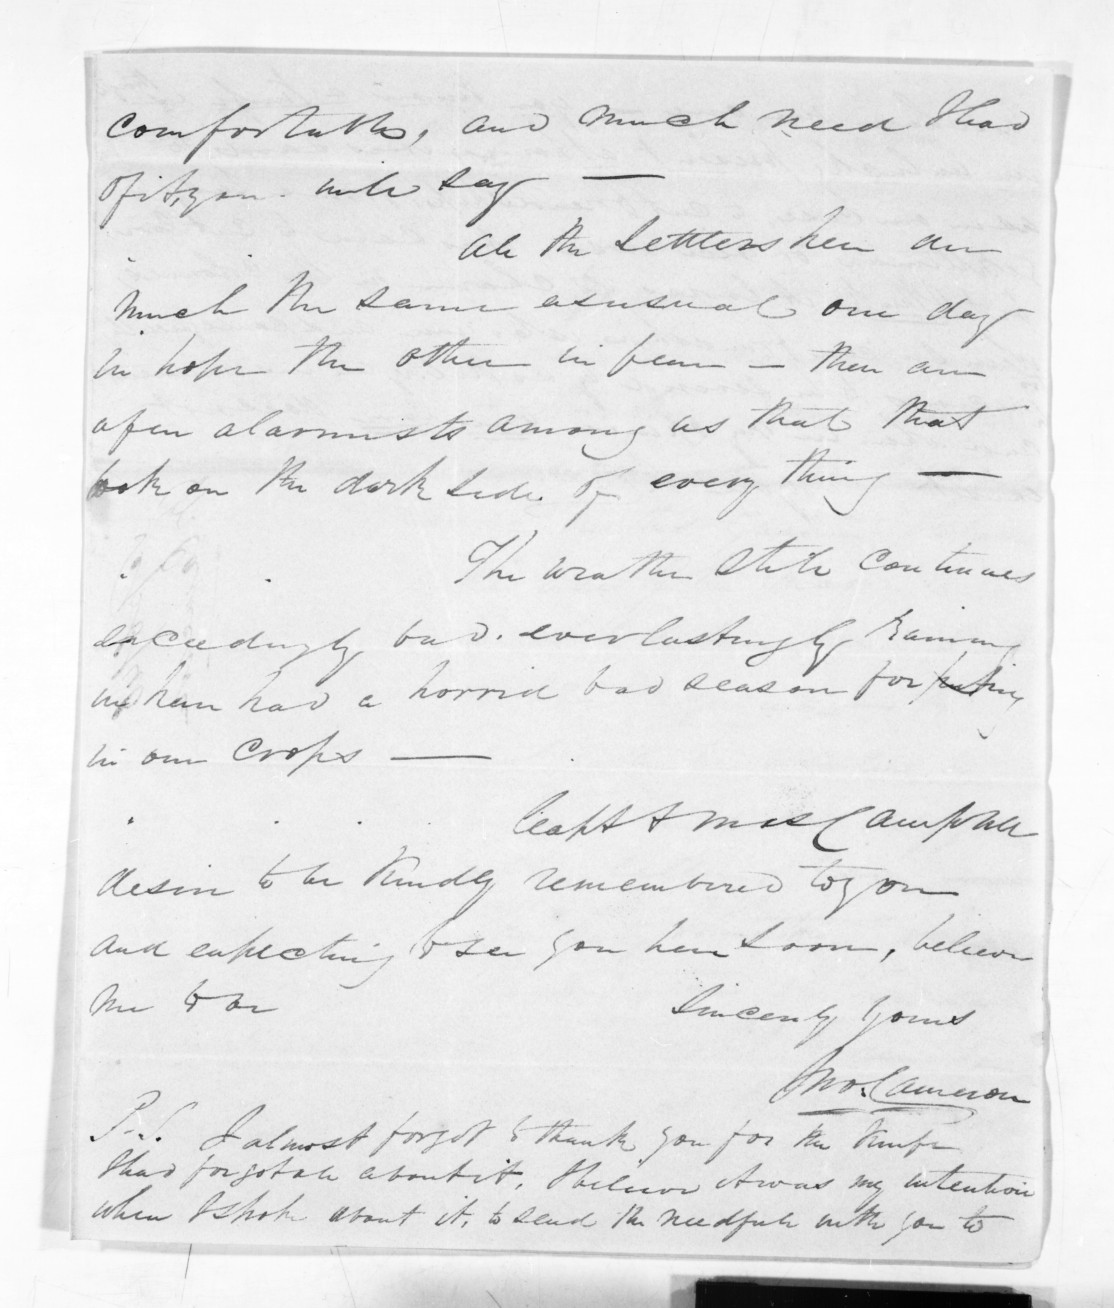 comfortable, and much need I had
of it, you will say —
All the Settlers here are
much the same as usual one day
in hope the other in fear — there are
a few alarmists among us that that
look on the dark side of every thing —
The weather still continues
exceedingly bad. everlastingly raining
we have had a horrid bad season for
in our crops —
Capt & Mrs Campbell
desire to be kindly remembered to you
and expecting to see you here soon, believe
me to be Sincerely yours
Jno. Cameron
P.S. I almost forgot to thank you for the Knife
I had forgot all about it. I believe it was my intention
when I spoke about it, to send the needful with you to